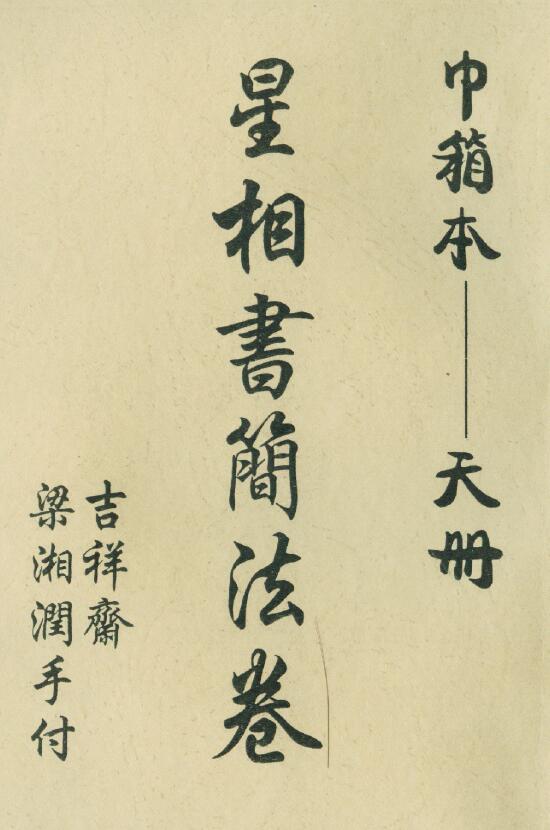 巾箱本——天册
星相書簡法卷
吉祥齋
梁湘潤手付